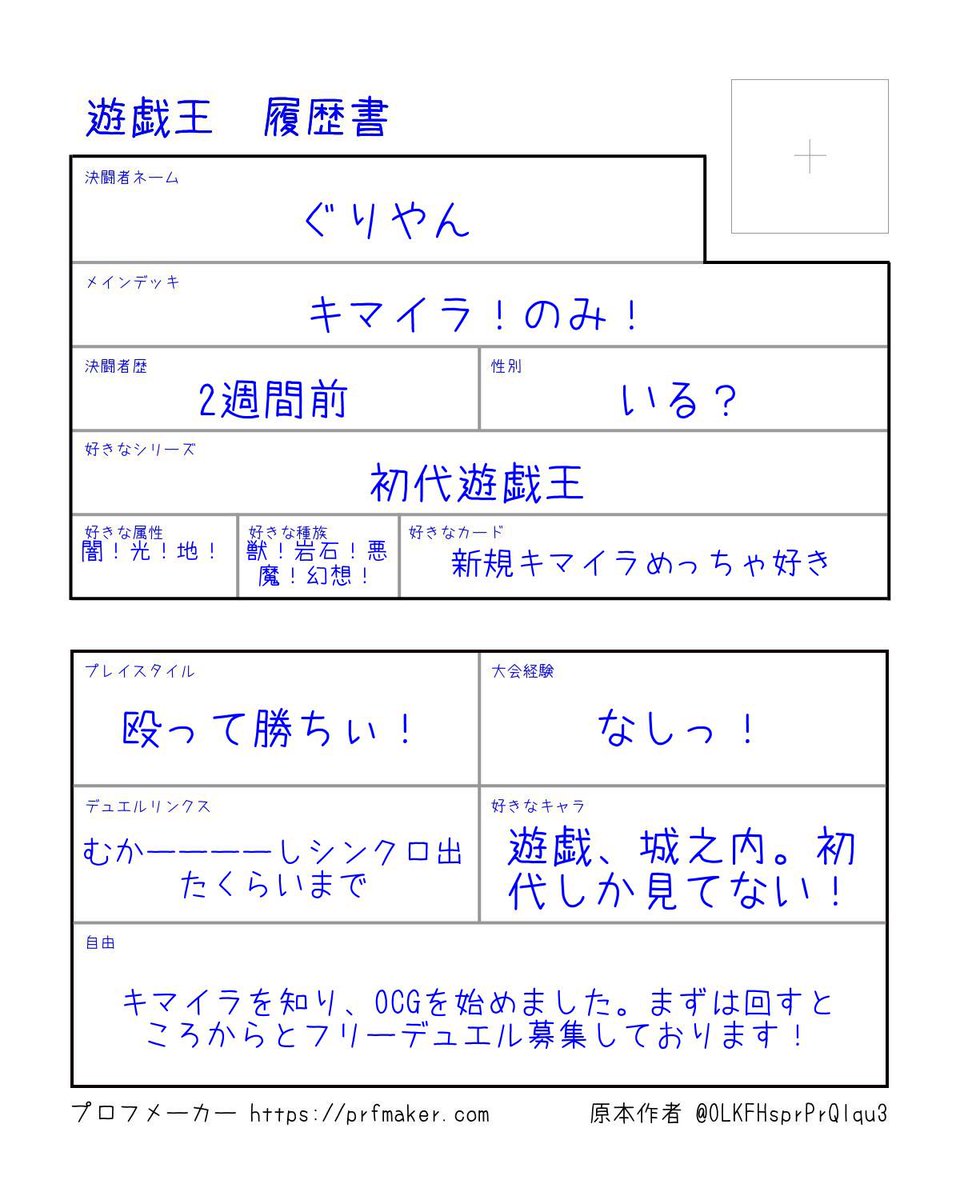 遊戯王　履歴書
決闘者ネーム
ぐりやん
メインデッキ
キマイラ！のみ！
決闘者歴
2週間前
性別
いる？
好きなシリーズ
初代遊戯王
好きな属性
闇！光！地！
好きな種族
獣！岩石！悪
魔！幻想！
好きなカード
新規キマイラめっちゃ好き
プレイスタイル
殴って勝ちぃ！
大会経験
なしっ！
デュエルリンクス
むかーーーーしシンクロ出
たくらいまで
好きなキャラ
遊戯、城之内。初
代しか見てない！
自由
キマイラを知り、OCGを始めました。まずは回すと
ころからとフリーデュエル募集しております！
プロフメーカー https://prfmaker.com
原本作者 @OLKFHsprPrQlqu3